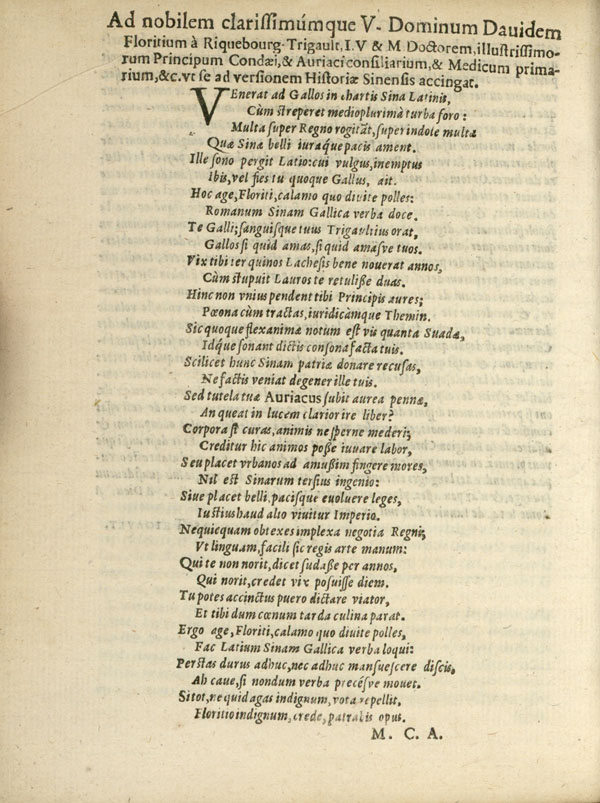 Ad nobilem clarissimúmque V. Dominum Dauidem
Floritium à Riquebourg-Trigault, I.V & M Doctorem, illustrissimo-
rum Principum Condæi, & Auriaci consiliarium, & Medicum prima-
rium, &c. vt se ad versionem Historiæ Sinensis accingat.
VEnerat ad Gallos in chartis Sina Latinis,
Cùm streperet medio plurima turba foro:
Multa super Regno rogitāt, super indole multa
Quæ Sinæ belli iuraque pacis ament.
Ille sono pergit Latio: cui vulgus, inemptus
Ibis, vel fies tu quoque Gallus, ait.
Hoc age, Floriti, calamo quo diuite polles:
Romanum Sinam Gallica verba doce.
Te Galli; sanguisque tuus Trigaultius orat,
Gallos si quid amas, si quid amasve tuos.
Vix tibi ter quinos Lachesis bene nouerat annos,
Cùm stupuit Lauros te retulisse duas.
Hinc non vnius pendent tibi Principis aures;
Pæona cùm tractas, iuridicámque Themin.
Sic quoque flexanimæ notum est vis quanta Suadæ,
Idque sonant dictis consona facta tuis.
Scilicet hunc Sinam patriæ donare recusas,
Ne factis veniat degener ille tuis.
Sed tutela tuæ Auriacus subit aurea pennæ,
An queat in lucem clarior ire liber?
Corpora st curas, animis ne sperne mederi;
Creditur hic animos posse iuuare labor,
Seu placet vrbanos ad amussim fingere mores,
Nil est Sinarum tersius ingenio:
Siue placet belli, pacisque euoluere leges,
Iustius haud alio viuitur Imperio.
Nequicquam obtexes implexa negotia Regni;
Vt linguam, facili sic regis arte manum:
Qui te non norit, dicet sudasse per annos,
Qui norit, credet vix posuisse diem.
Tu potes accinctus puero dictare viator,
Et tibi dum cœnum tarda culina parat.
Ergo age, Floriti, calamo quo diuite polles,
Fac Latium Sinam Gallica verba loqui:
Perstas durus adhuc, nec adhuc mansuescere discis,
Ah caue, si nondum verba precésve mouet.
Si tot, ne quid agas indignum, vota repellit,
Floritio indignum, crede, patrabis opus.
M. C. A.